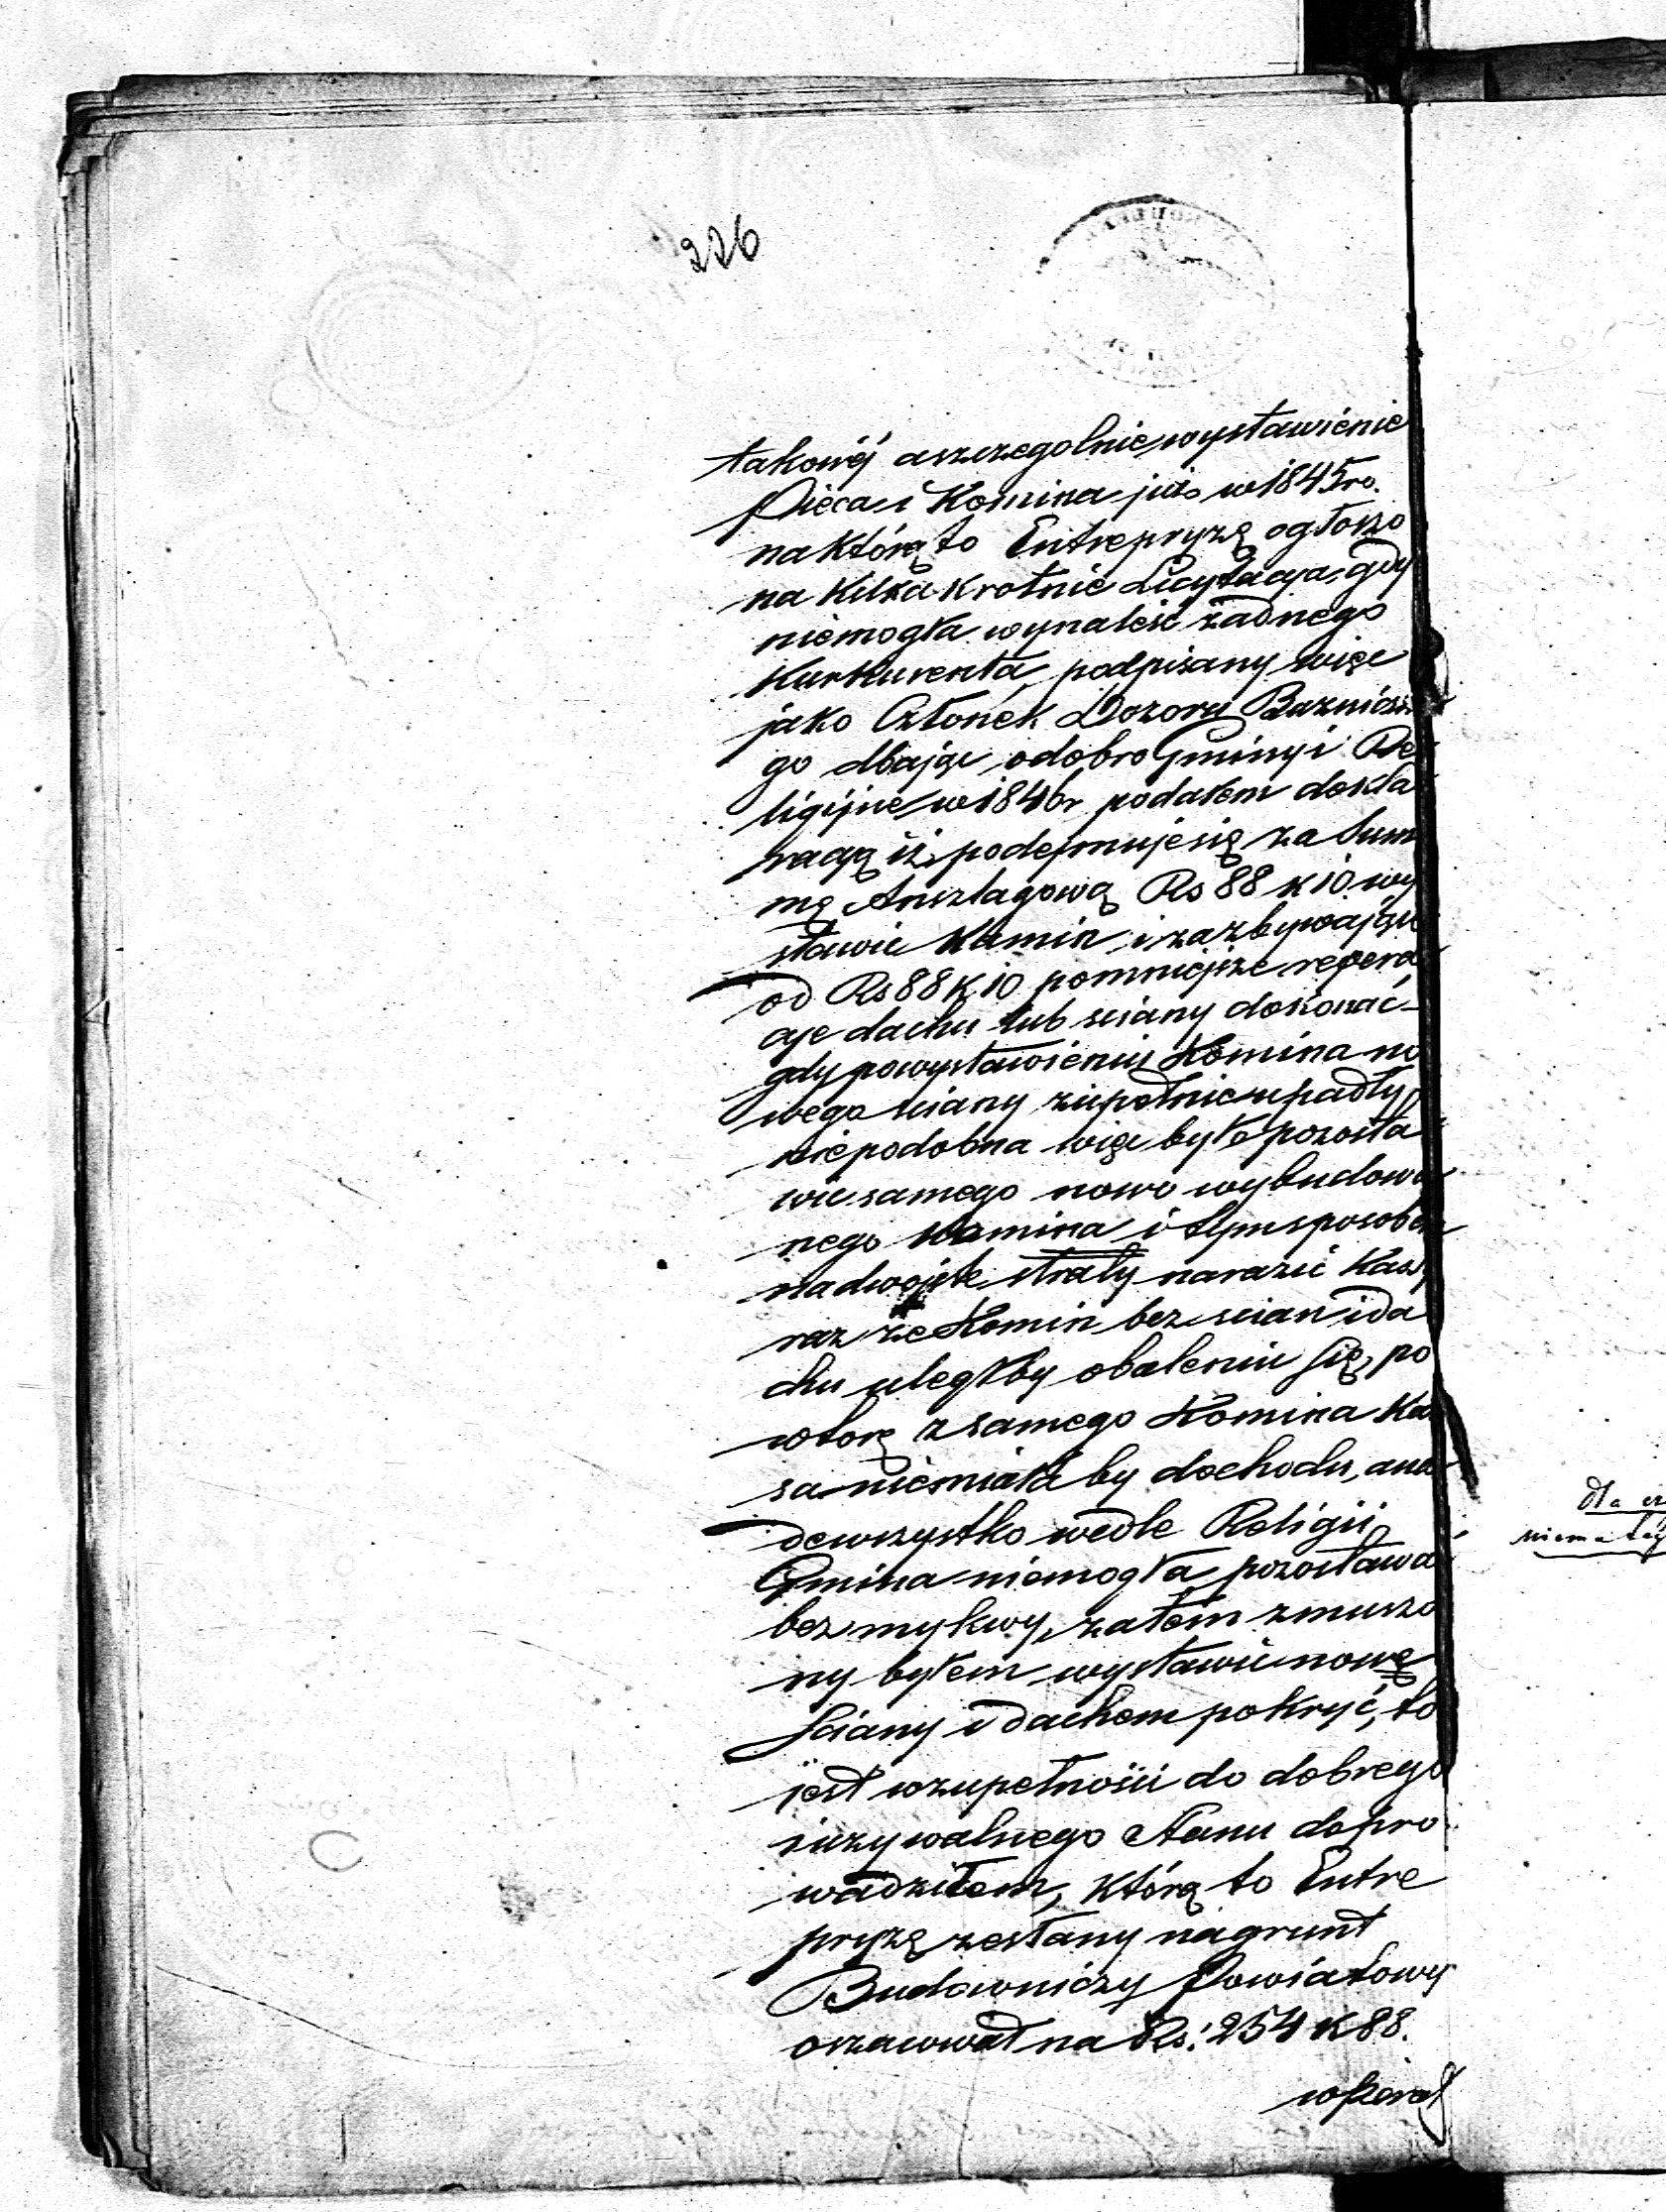 226
takowéj a szczegolnie wystawienie
Pieca i Komina już w 1845 ro.
na którą to Entrepryzą ogłoszo
na Kilka Krotnie Licytacya, gdy
niemogła wynaleść żadnego
Kunkurenta, podpisany więc
jako Członek Dozoru Bożnicz
go dbając o dobro Gminy i Re
ligijne w 1846 r podałem dekla
racyą iż podejmuje się za Sum
mą Anszlagową Rs 88 k 10 wy
stawic Kamin i zazbywając
od Rs 88 k 10 pomniejsze repera
cyje dachu lub sciany dokonać
gdy powystawieniu Komina no
wego sciany zupełnie upadły,
niepodobna więc było pozosta
wic samego nowo wybudowa
nego Kamina i tym sposobem
na dwojste straty narazic Kass
raz że Komin bez scian i da
chu uległby obaleniu się, po
wtorę z samego Komina Kas
sa niemiała by dochodu, ana
dewszystko wedle Religii
Gmina niemogła pozostawa
bez mykwy, zatem zmuszo
ny byłem wystawic nowe
Sciany i dachem pokryć, to
jest wzupełności do dobrego
i uzywalnego Stanu dopro
wadziłem, którą to Entre
pryzą zesłany na grunt
Budowniczy Powiatowy
oszacował na Rs. 254 k 88.